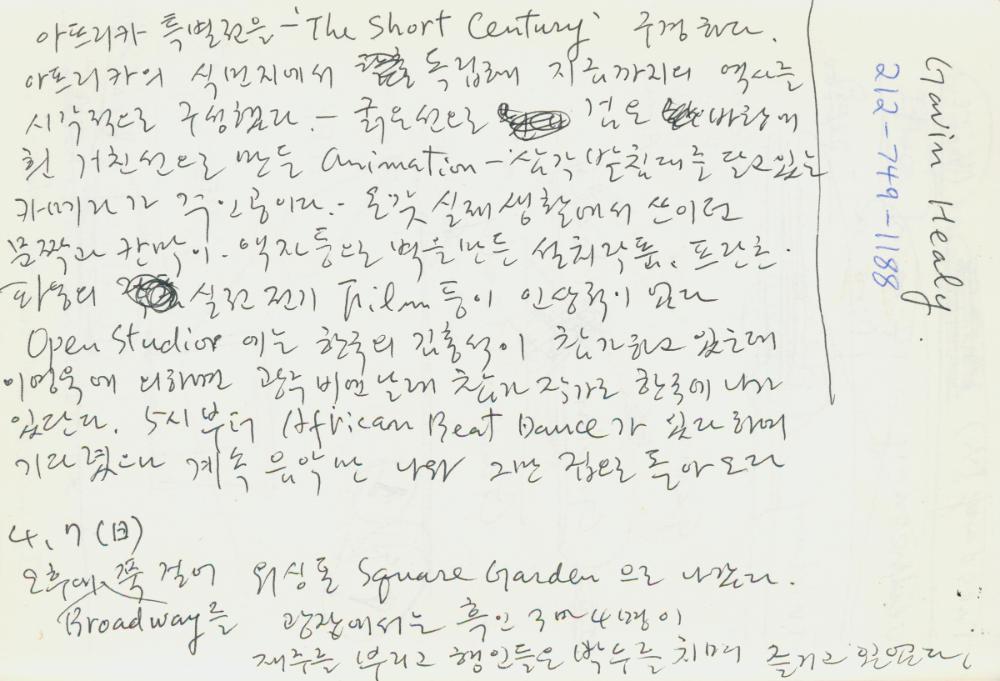 아프리카 특별전을 - 'The Short Century' 구경하다.
아프리카의 식민지에서 독립해 지금까지의 역사를
시각적으로 구성했다. - 굵은선으로 검은 바탕에
흰 거친선으로 만든 animation - 삼각 받침대를 달고있는
카메라가 주인공이다. - 온갖 실제생활에서 쓰이던
문짝과 칸막이. 액자등으로 벽을 만든 설치작품, 프란츠.
파농의 실전전기 Film 등이 인상적이었다
Open Studio 에는 한국의 김홍석이 참가하고 있는데
이영욱에 의하면 광주비엔날레 참가 작가로 한국에 나가
있단다. 5시부터 African Beat Dance가 있다하여
기다렸으나 계속 음악만 나와 그만 집으로 돌아오다
4, 7 (日)
오후에 쭉 걸어 워싱톤 Square Garden 으로 나갔다.
Broadway를 광장에서는 흑인 3명 4명이
재주를 부리고 행인들은 박수를 치며 즐기고 있었다.
Gavin Healy
212-749-1188